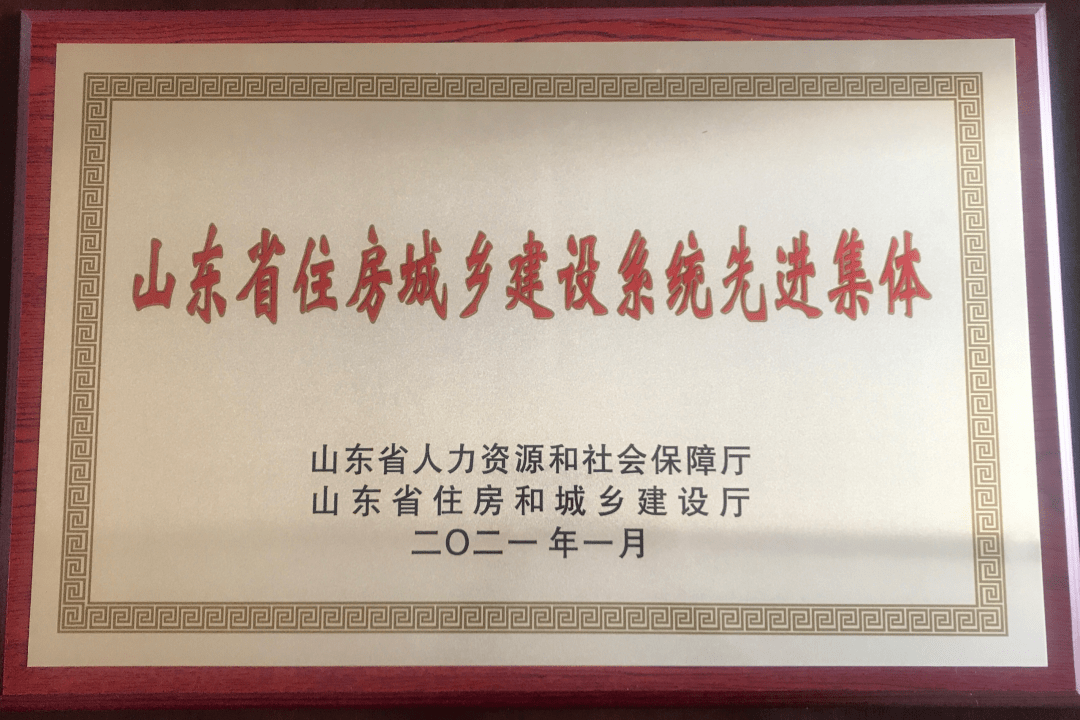 山东省住房城乡建设系统先进集体
山东省人力资源和社会保障厅
山东省住房和城乡建设厅
二〇二一年一月